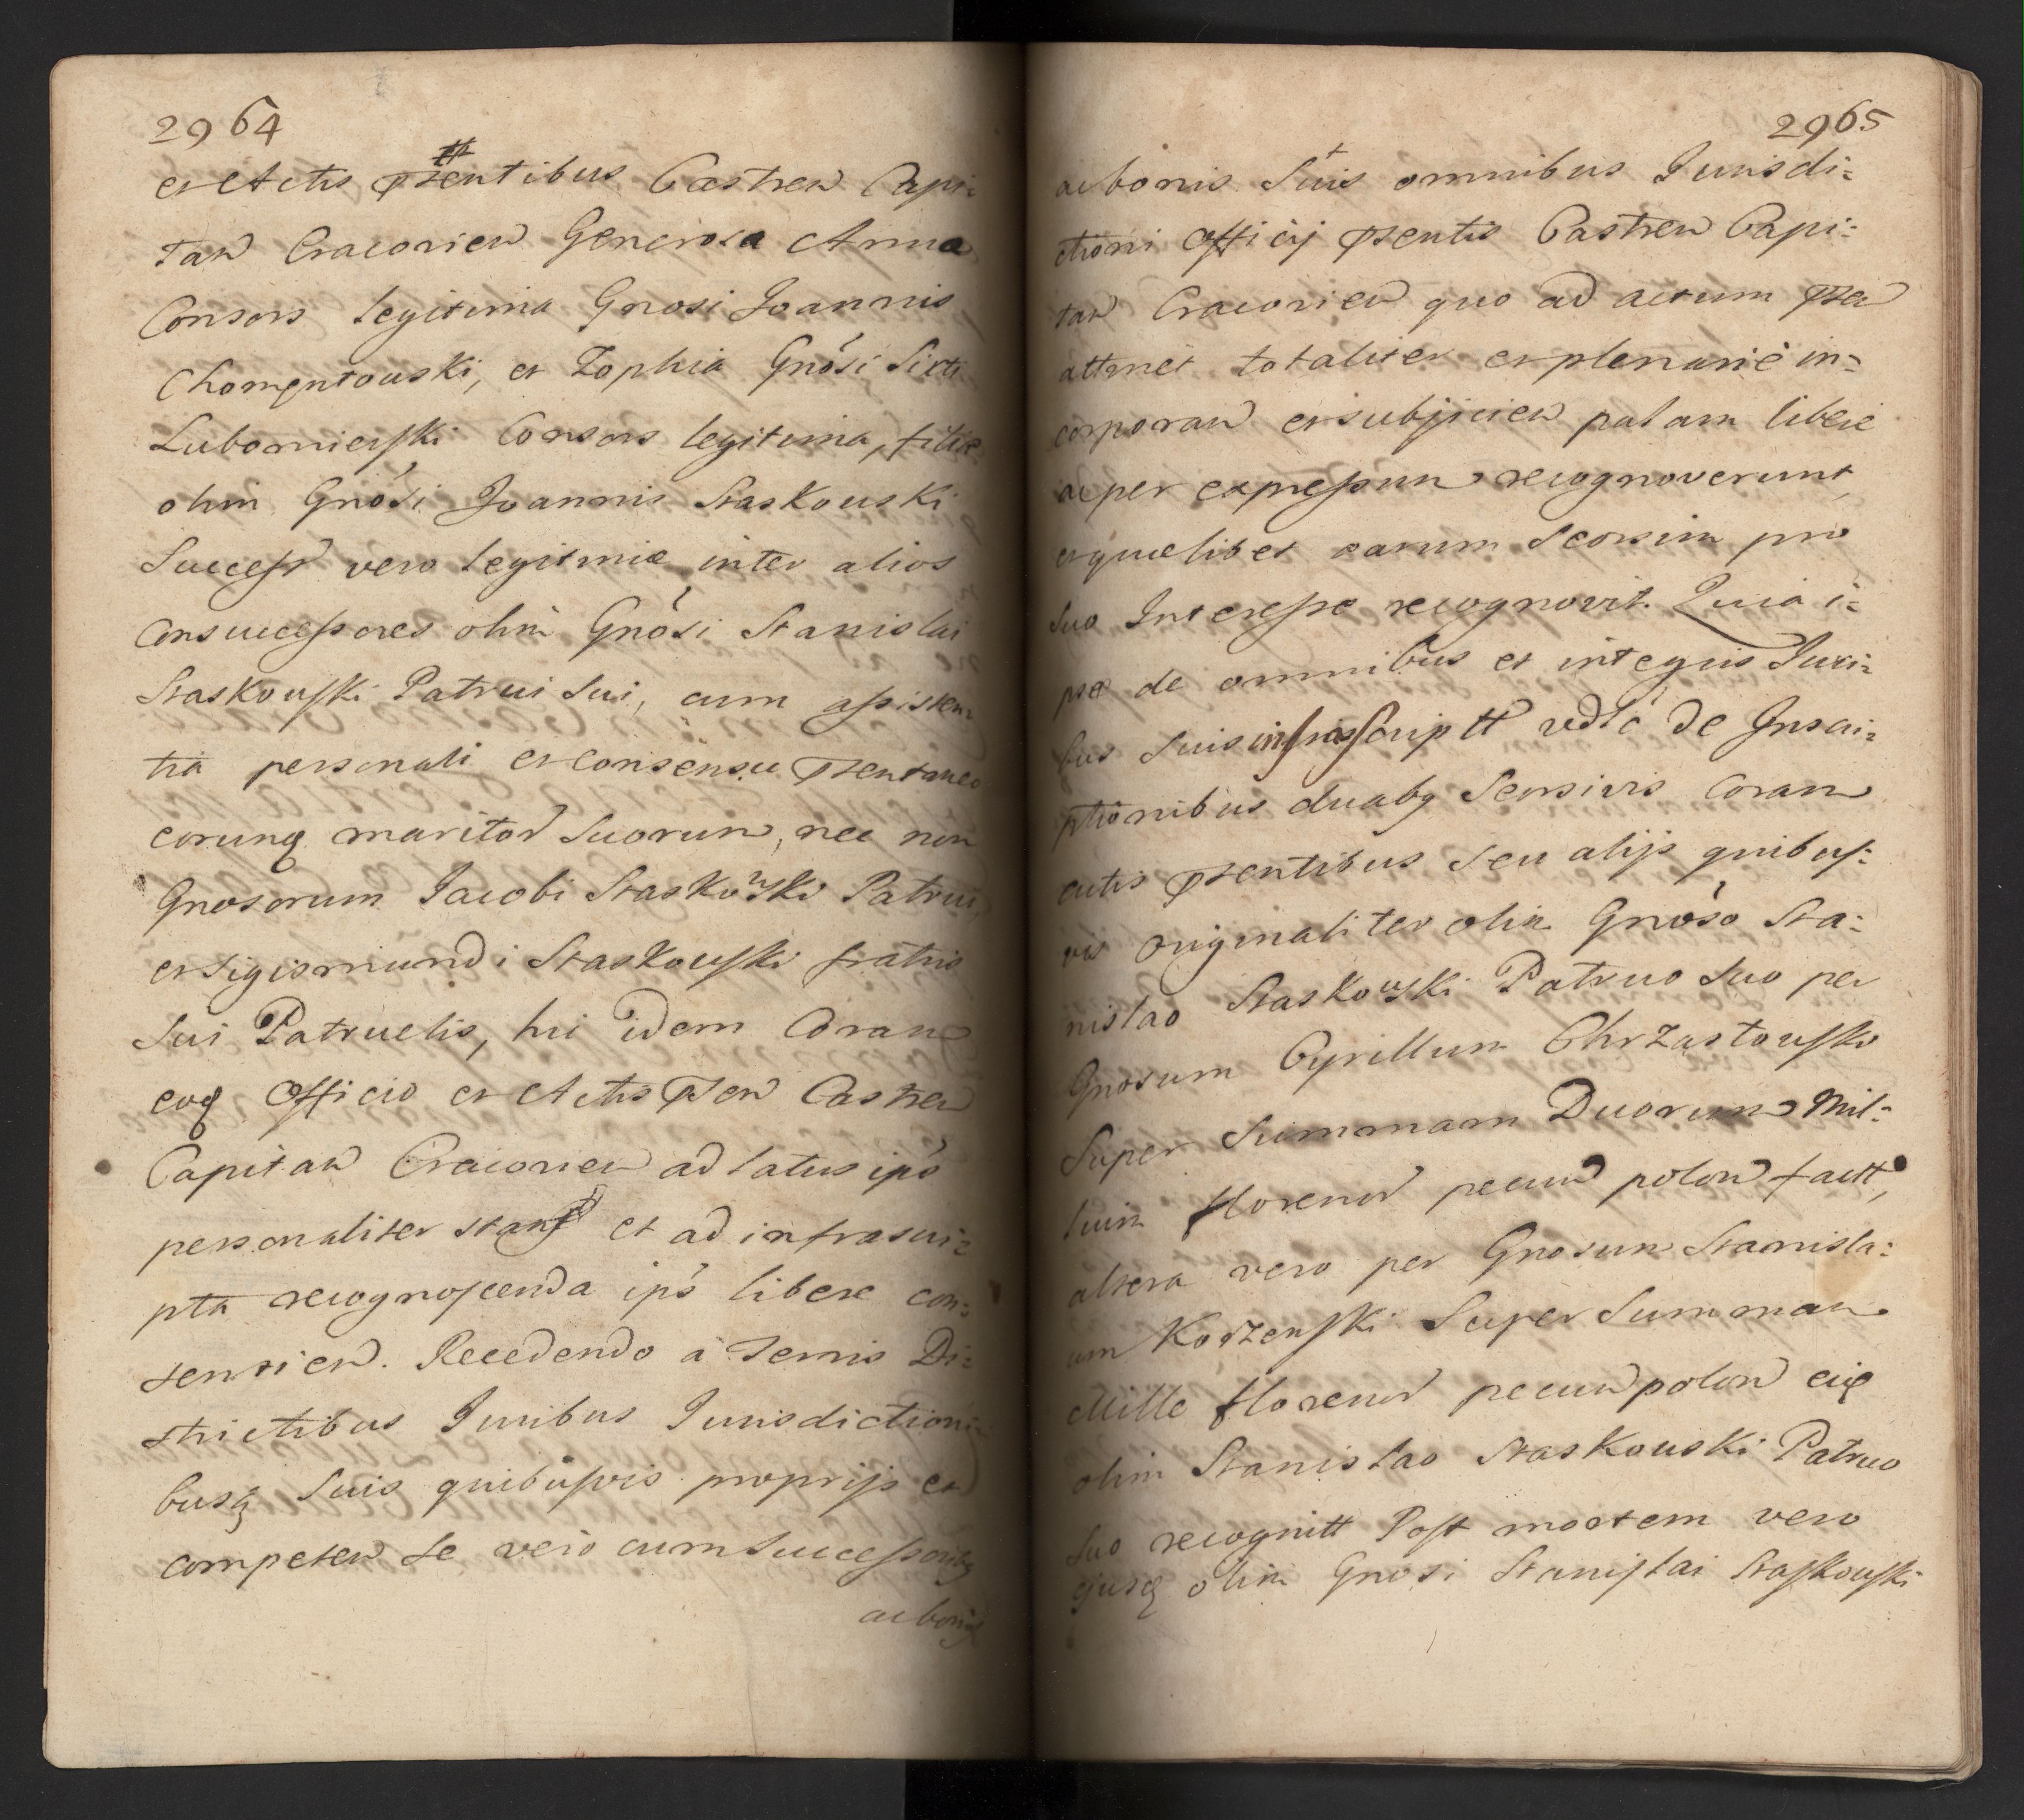 2964
et Actis pzentibus Castren Capi=
tan Cracovien Generosa Anna
Consors legitima Gnosi Joannis
Chomentouski, et Zophia Gnosi Sixti
Lubomierski Consors legitima, filiæ
olim Gnosi Joannis Staskouski
Success vero legitimæ inter alios
Consuccessores olim Gnosi Stanislai
Staskouski Patrui sui, cum assisten=
tia personali et consensu pzentaneo
earunq maritor suorum, nec non
Gnosorum Jacobi Staskowski Patrui
et Sigismundi Staskouski fratris
sui Patruelis, hi idem Coram
eoq Officio et Actis pzen Castren
Capitan Cracovien ad latus ips
personaliter stan et ad infrascri=
pta recognoscenda ips libere con=
sentien. Recedendo à Terris Di=
strictibus Juribus Jurisdictioni=
busq suis quibusvis proprijs et
competen se vero cum successoribq
ac bonis
2965
ac bonis suis omnibus Jurisdi=
ctioni Officij pzentis Castren Capi=
tan Cracovien quo ad actum pzen
attinet totaliter et plenarie in=
corporan et subjicien palam libere
ac per expressum recognoverunt,
et quælibet earum seorsim pro
suo Interesse recognovit. Quia i=
psæ de omnibus et integris Juri=
bus suis infrascriptt vdlt de Inscri=
ptionibus duabq seorsivis coram
actis pzentibus seu alijs quibus=
vis originaliter olim Gnoso Sta=
nislao Staskowski Patruo suo per
Gnosum Cyrillum Chrząstouski
Super Summam Duorum Mil=
lium florenor pecun polon factt,
altera vero per Gnosum Stanisla=
um Korzenski Super Summam
Mille florenor pecun polon eiq
olim Stanislao Staskouski Patruo
suo recognitt Post mortem vero
ejusq olim Gnosi Stanislai Staskouski